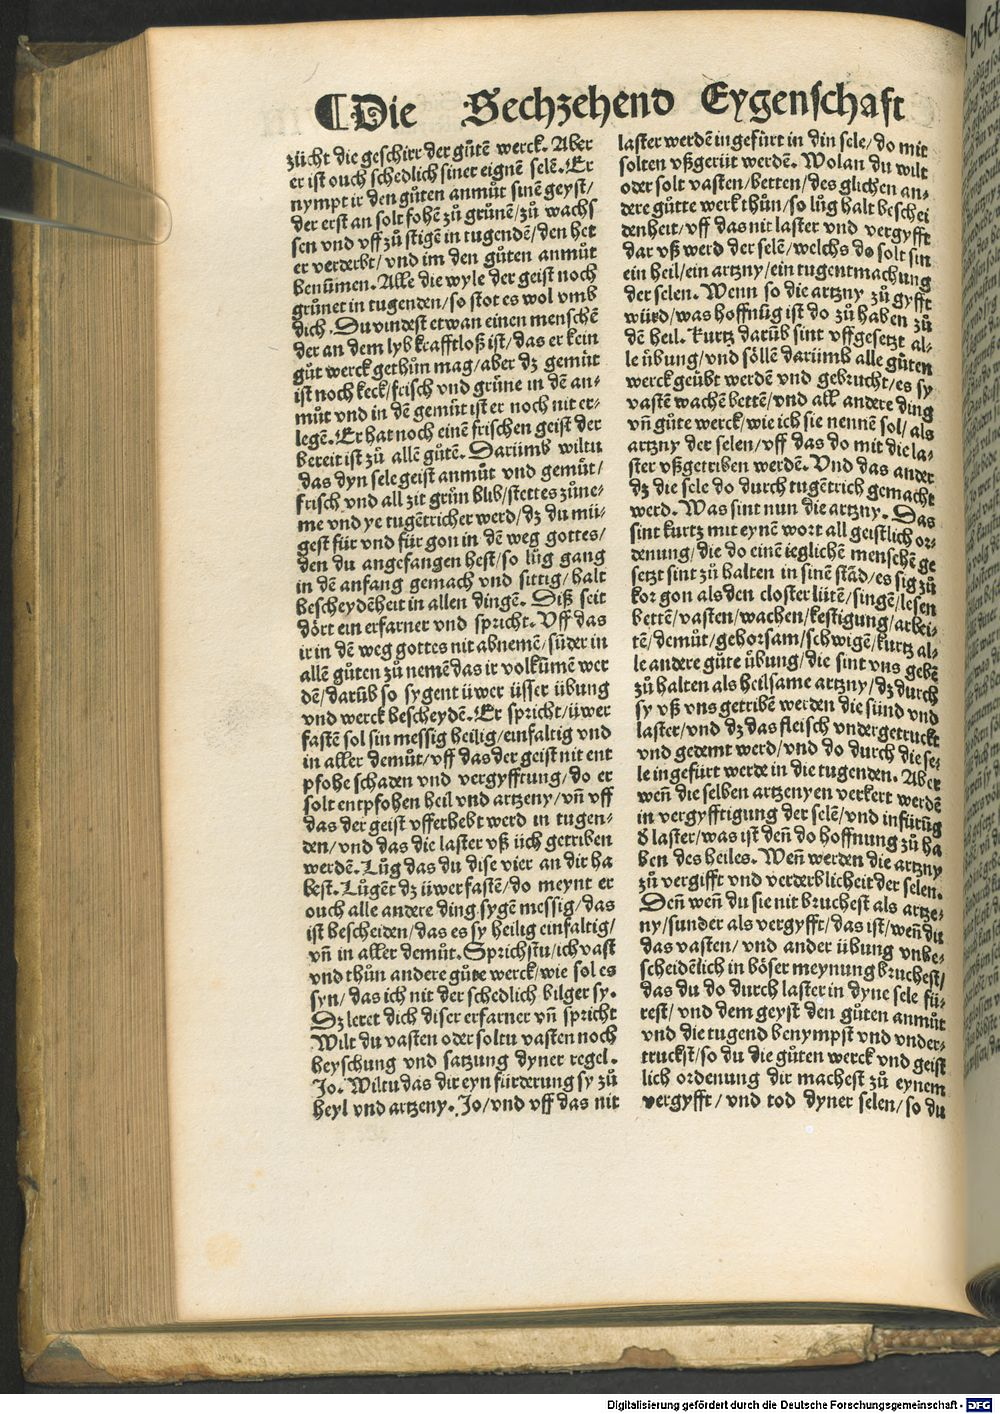 ¶Die Sechzehend Eygenschaft
zücht die geschirr der gůtē werck. Aber
er ist ouch schedlich siner eignē selē. Er
nympt ir den gůten anmůt sinē geyst/
der erst an solt fohē zů grůnē/zů wachs
sen vnd vff zů stigē in tugendē/den het
er verderbt/vnd im den gůten anmůt
benūmen. Alle die wyle der geist noch
grůnet in tugenden/so stot es wol vmb
dich. Du vindest etwan einen menschē
der an dem lyb krafftloß ist/das er kein
gůt werck gethůn mag/aber dz gemůt
ist noch keck/frisch vnd grůne in dē an-
můt vnd in dē gemůt ist er noch nit er-
legē. Er hat noch einē frischen geist der
bereit ist zů allē gůtē. Darümb wiltu
das dyn sele geist anmůt vnd gemůt/
frisch vnd all zit grůn blib/stettes zůne-
me vnd ye tugētricher werd/dz du mü-
gest für vnd für gon in dē weg gottes/
den du angefangen hest/so lůg gang
in dē anfang gemach vnd sittig/halt
bescheydēheit in allen dingē. Diß seit
dört ein erfarner vnd spricht. Vff das
ir in dē weg gottes nit abnemē/sūder in
allē gůten zů nemē das ir volkūmē wer
dē/darūb so sygent üwer üsser übung
vnd werck bescheydē. Er spricht/üwer
fastē sol sin messig heilig/einfaltig vnd
in aller demůt/vff das der geist nit ent
pfohe schaden vnd vergyfftung/do er
solt entpfohen heil vnd artzeny/vn̄ vff
das der geist vfferhebt werd in tugen-
den/vnd das die laster vß üch getriben
werdē. Lůg das du dise vier an dir ha
best. Lůgēt dz üwer fastē/do meynt er
ouch alle andere ding sygē messig/das
ist bescheiden/das es sy heilig einfaltig/
vn̄ in aller demůt. Sprichstu/ich vast
vnd thůn andere gůte werck/wie sol es
syn/das ich nit der schedlich bilger sy.
Dz leret dich diser erfarner vn̄ spricht
Wilt du vasten oder soltu vasten noch
heyschung vnd satzung dyner regel.
Jo. Wiltu das dir eyn fürderung sy zů
heyl vnd artzeny. Jo/vnd vff das nit
laster werdē ingefürt in din sele/do mit
solten vßgerüt werdē. Wolan du wilt
oder solt vasten/betten/des glichen an-
dere gůtte werk thůn/so lůg halt beschei
denheit/vff das nit laster vnd vergyfft
dar vß werd der selē/welchs do solt sin
ein heil/ein artzny/ein tugentmachung
der selen. Wenn so die artzny zů gyfft
würd/was hoffnūg ist do zů haben zů
dē heil. Kurtz darūb sint vffgesetzt al-
le übung/vnd söllē darümb alle gůten
werck geübt werdē vnd gebrucht/es sy
vastē wachē bettē/vnd all andere ding
vn̄ gůte werck/wie ich sie nennē sol/als
artzny der selen/vff das do mit die la-
ster vßgetriben werdē. Vnd das ander
dz die sele do durch tugētrich gemacht
werd. Was sint nun die artzny. Das
sint kurtz mit eynē wort all geistlich or-
denung/die do einē ieglichē menschē ge
setzt sint zů halten in sinē stād/es sig zů
kor gon als den closter lütē/singē/lesen
bettē/vasten/wachen/kestigung/arbei-
tē/demůt/gehorsam/schwigē/kurtz al-
le andere gůte übung/die sint vns gebē
zů halten als heilsame artzny/dz durch
sy vß vns getribē werden die sünd vnd
laster/vnd dz das fleisch vndergetruckt
vnd gedemt werd/vnd do durch die se-
le ingefürt werde in die tugenden. Aber
wen̄ die selben artzenyen verkert werdē
in vergyfftigung der selē/vnd infürūg
d laster/was ist den̄ do hoffnung zů ha
ben des heiles. Wen̄ werden die artzny
zů vergifft vnd verderblicheit der selen.
Den̄ wen̄ du sie nit bruchest als artze-
ny/sunder als vergyfft/das ist/wen̄ du
das vasten/vnd ander übung vnbe-
scheidēlich in böser meynung bruchest/
das du do durch laster in dyne sele fü-
rest/vnd dem geyst den gůten anmůt
vnd die tugend benympst vnd vnder-
truckst/so du die gůten werck vnd geist
lich ordenung dir machest zů eynem
vergyfft/vnd tod dyner selen/so du
Digitalisierung gefördert durch die Deutsche Forschungsgemeinschaft - DFG